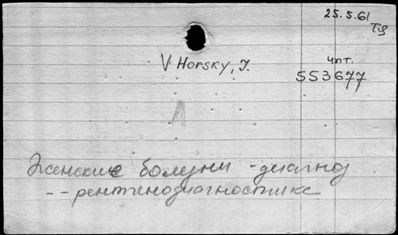 25.5.61
Tg
V Horsky, J.
чпт.
553677
Женские болезни - диагноз
-- рентгенодиагностика